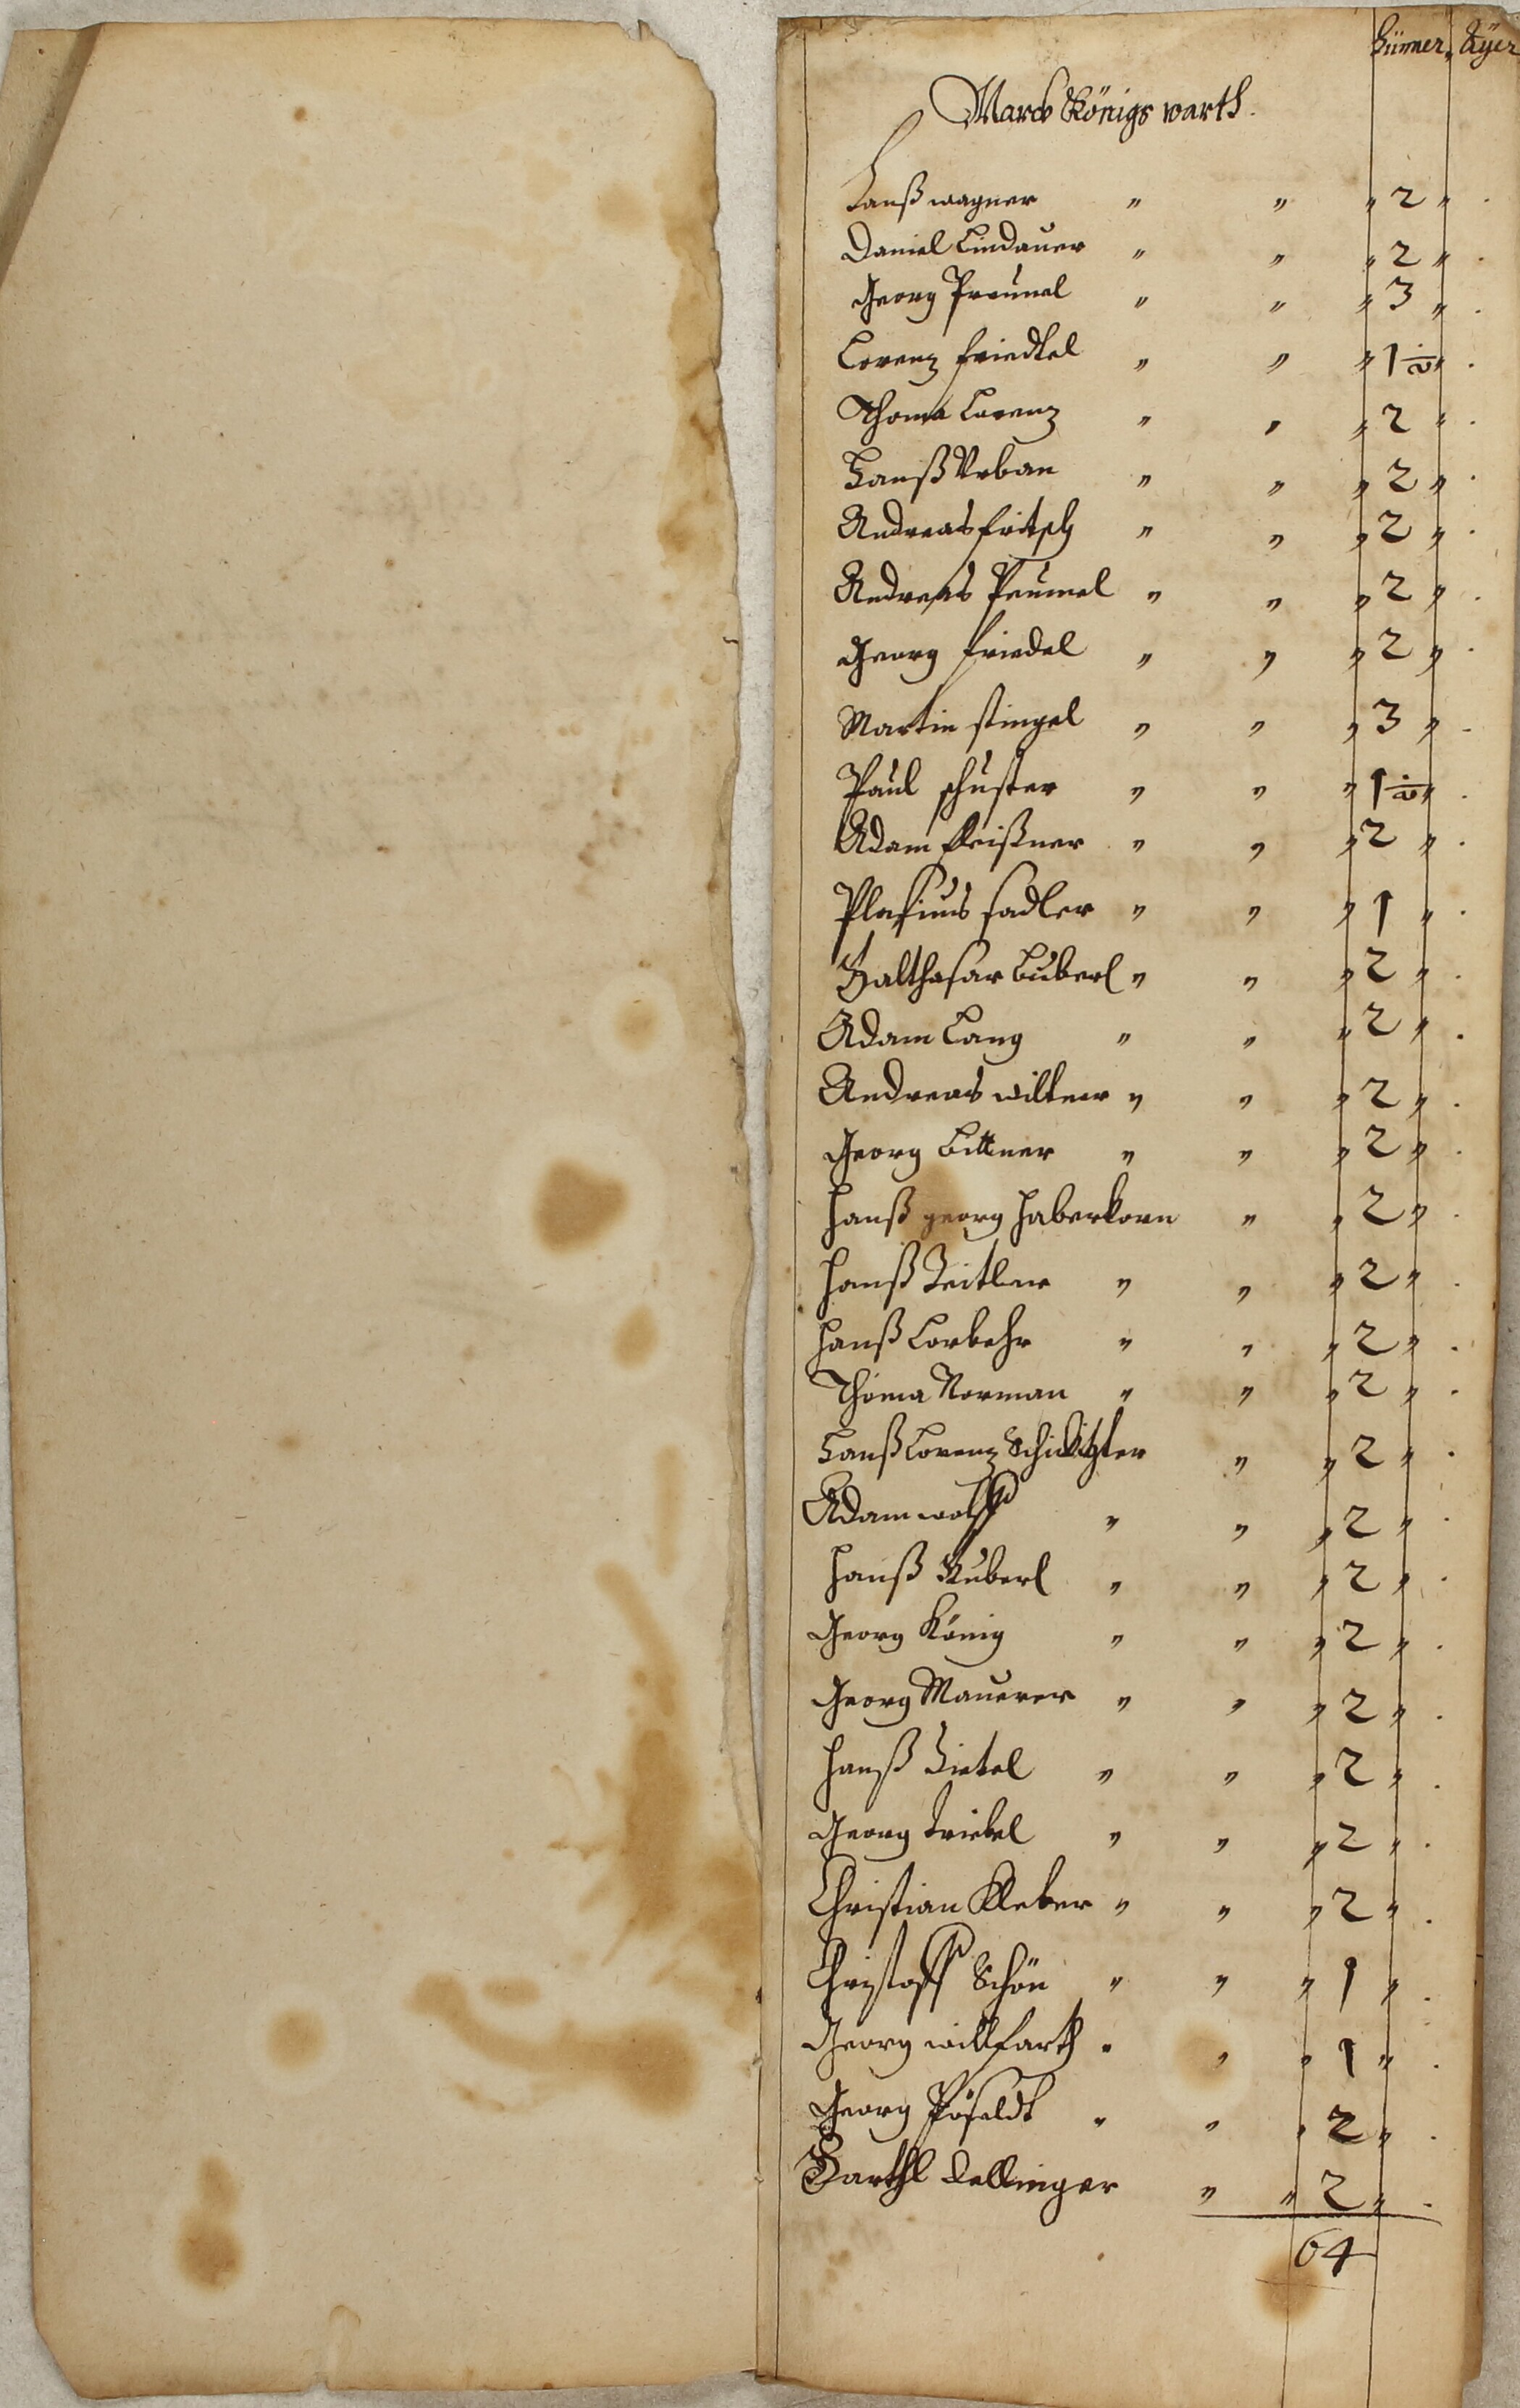 Hünner, Äyer
Marck Königs warth.
Hanß wagner " " " 2 " .
Daniel Lindauer " " " 2 " .
Georg Preimel " " " 3 " .
Lorenz friedtel " " " 1½ " .
Thoma Lorenz " " " 2 " .
Hanß Urban " " " 2 " .
Andreas fritsch " " " 2 " .
Andreas Peimel " " " 2 " .
Georg friedel " " " 2 " .
Martin stingel " " " 3 " .
Paul schuster " " " 1½ " .
Adam fleißner " " " 2 " .
Plasius sadler " " " 1 " .
Balthasar Buberl " " " 2 " .
Adam Lang " " " 2 " .
Andreas wiltner " " " 2 " .
Georg Bittner " " " 2 " .
Hanß georg Haberkorn " " 2 " .
Hanß Zeitler " " " 2 " .
Hanß Lorbehr " " " 2 " .
Thoma Norman " " " 2 " .
Hanß Lorenz " " 2 " .
Adam wolff " " " 2 " .
Hanß Buberl " " " 2 " .
Georg König " " " 2 " .
Georg Maurer " " " 2 " .
Hanß Dietel " " " 2 " .
Georg Triebel " " " 2 " .
Christian Kleber " " " 2 " .
Christoff Schön " " " 1 " .
Georg willfarth " " " 1 " .
Georg Pöseldt " " " 2 " .
Barthl Dellinger " " 2 " .
64